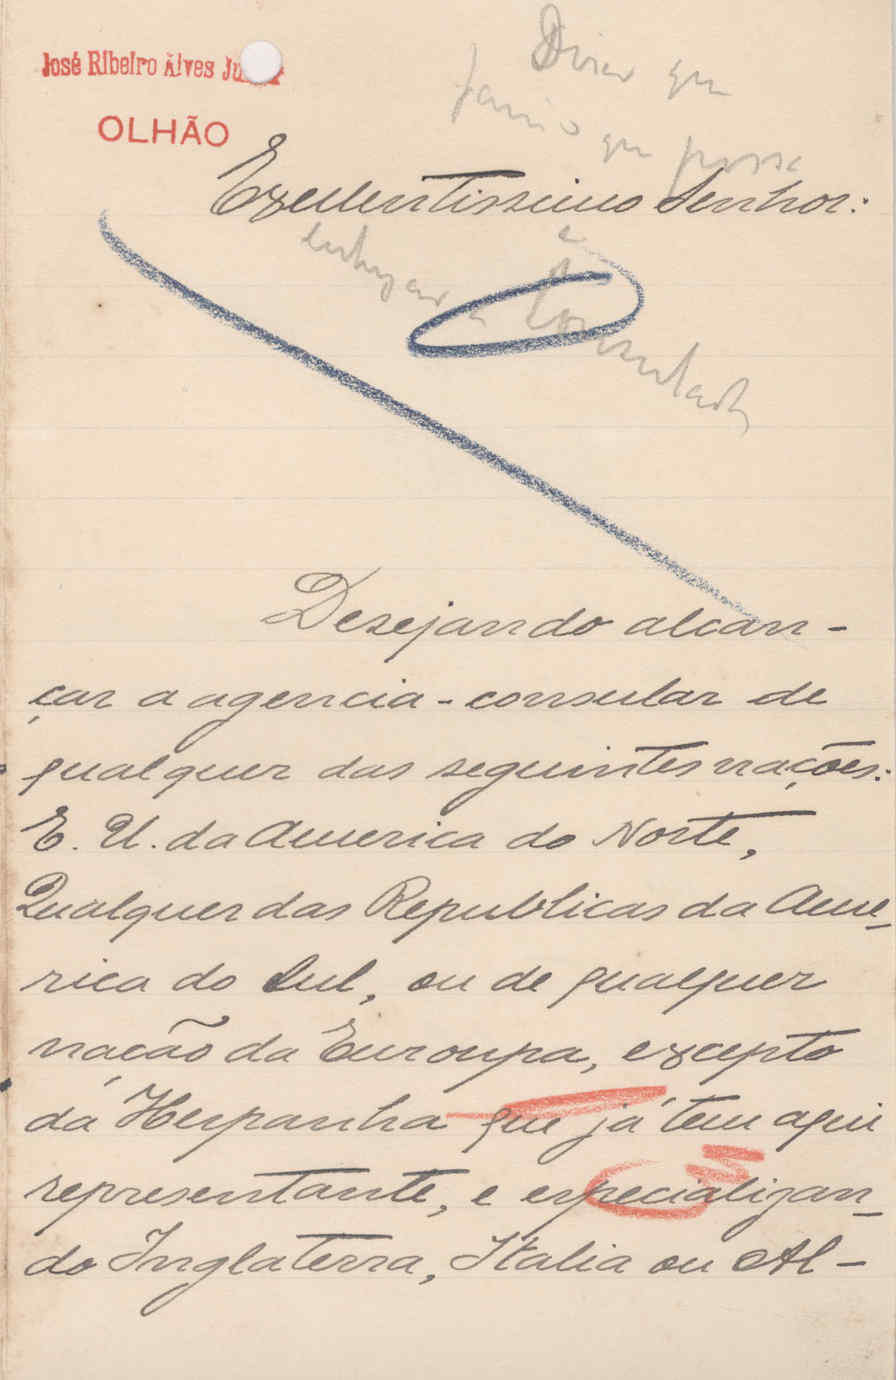 José Ribeiro Alves
OLHÃO
Dizer que
que possa
Excellentissimo Senhor:
Consulado
Desejando alcan-
çar a agencia-consular de
qualquer das seguintes nações:
E. U. da America do Norte,
Qualquer das Republicas da Ame-
rica do Sul, ou de qualquer
nação da Europa, excepto
da Hespanha que já tem aqui
representante, e especializan-
do Inglaterra, Italia ou Al-